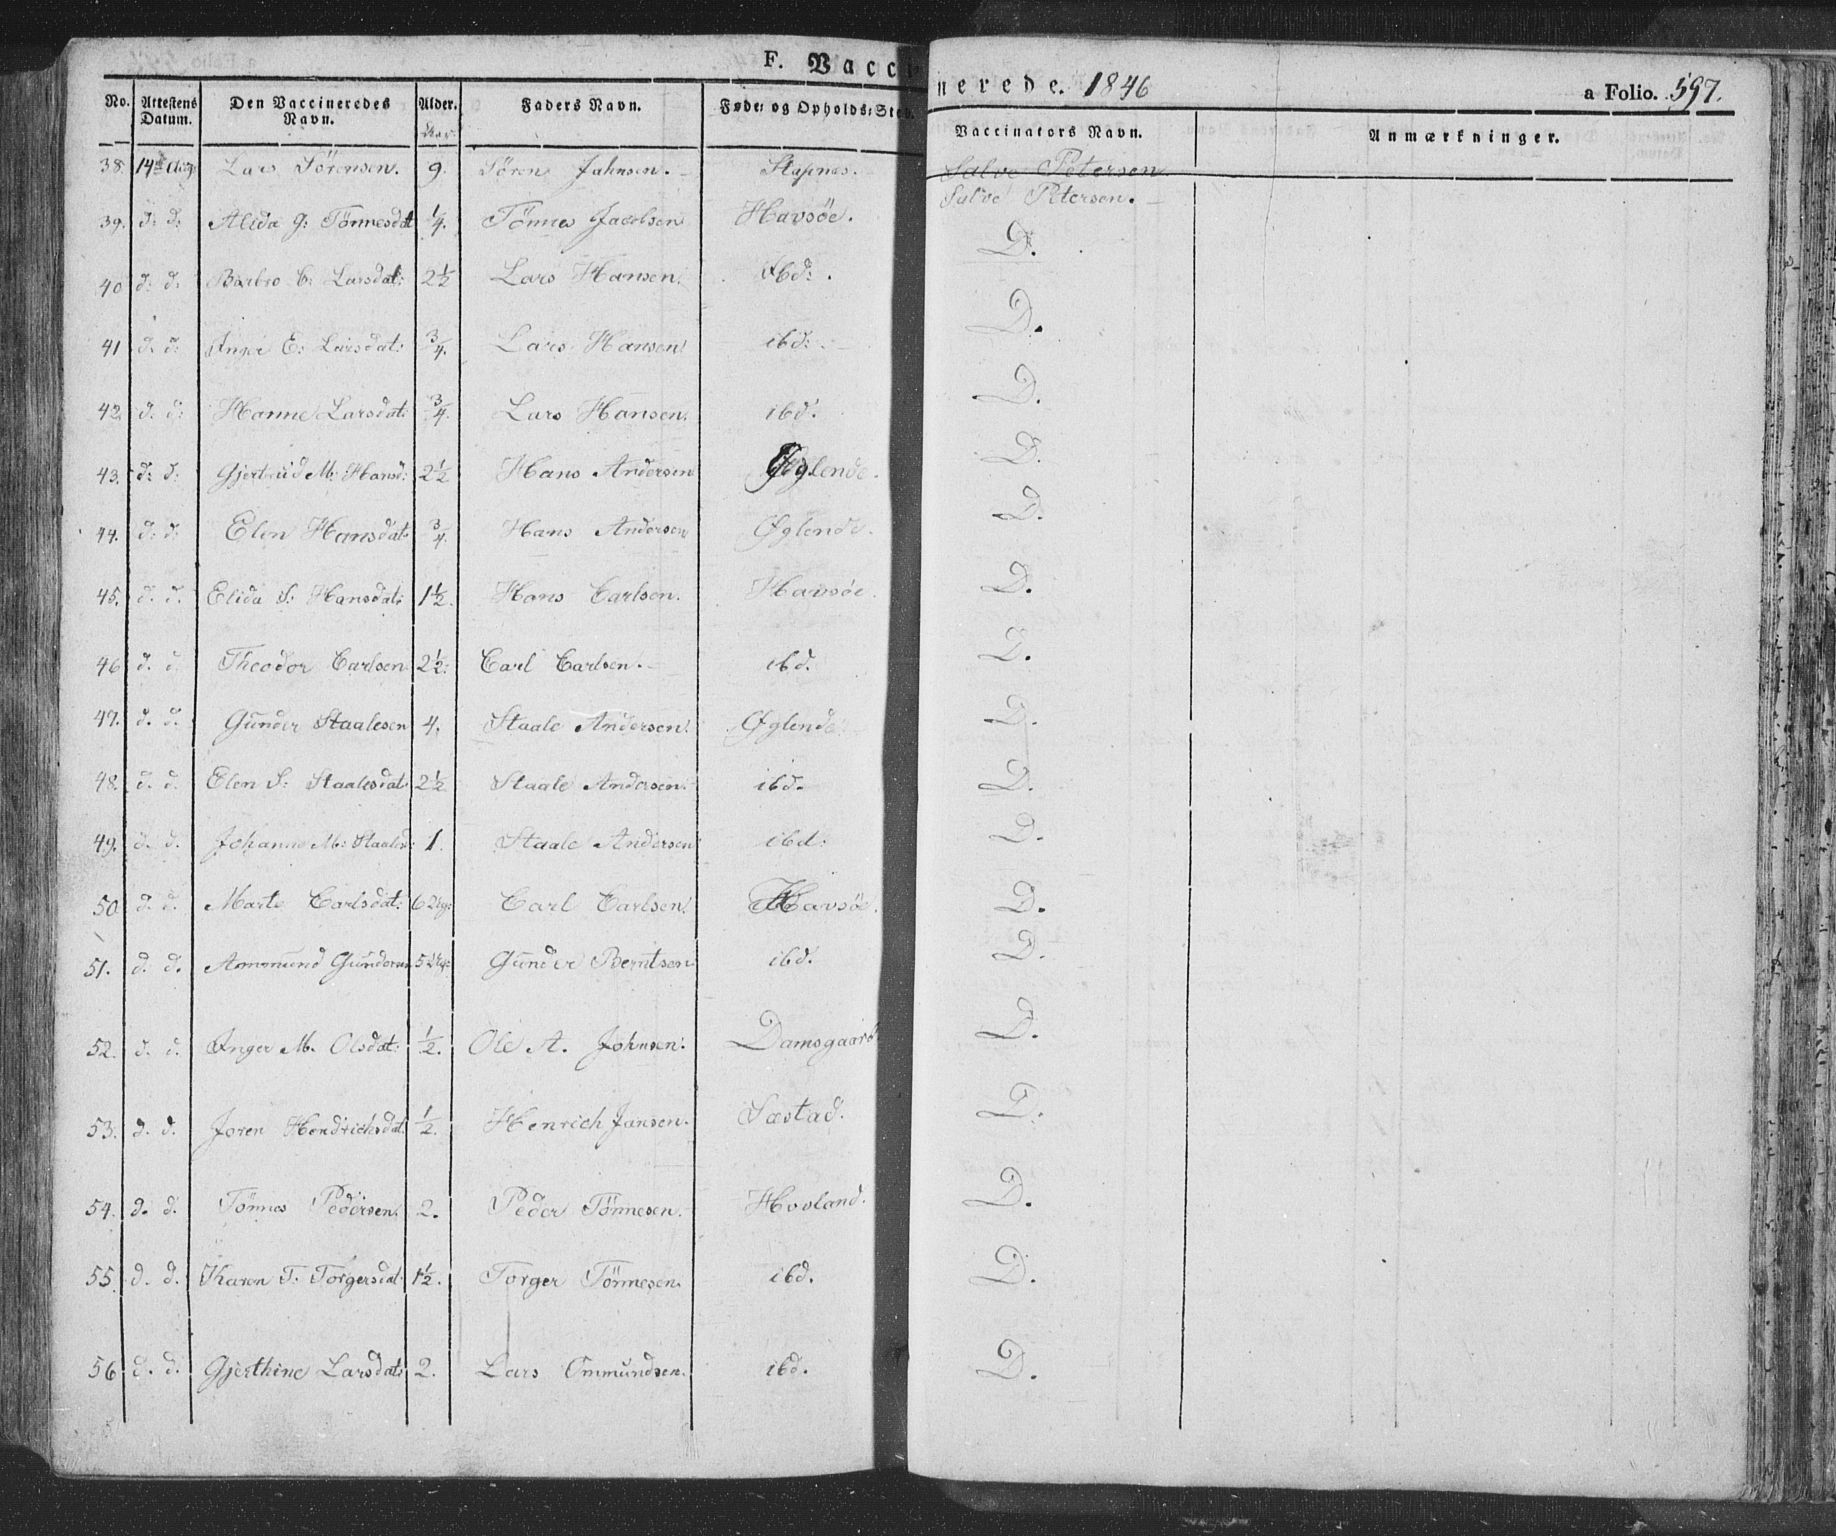 F. Vaccinerede. 1846 a Folio. 597.
No. Attestens Datum. Den Vaccineredes Navn. Alder. Faders Navn. Føde- og Opholds-Sted. Vaccinators Navn. Anmærkninger.
38. 14de Aug. Lars Sörensen. 9. Sören Jahnsen. Stapnes. Salve Petersen
Salve Petersen.
39. d: d: Alida G: Tönnesdat 1/4. Tönnes Jacobsen Havsöe. D.
40 d: d: Barbro C: Larsdat: 2 1/2 Lars Hansen. Ibd: D.
41 d. d: Inger E: Larsdat: 3/4. Lars Hansen ibd: D.
42 d. d: Hanne Larsdat: 3/4. Lars Hansen. ibd. D.
43. d: d: Gjertrud M: Hansd: 2 1/2 Hans Andersen Øglende. D.
44. d: d: Elen Hansdat 3/4. Hans Andersen Øglende. D.
45. d. d. Elida S: Hansdat: 1 1/2. Hans Carlsen. Havsöe. D.
46 d. d. Theodor Carlsen 2 1/2: Carl Carlsen. ibd. D.
47. d. d. Gunder Staalesen 4. Staale Andersen Øglende D.
48. d. d. Elen S: Staalesdat 2 1/2 Staale Andersen. ibd. D.
49. d. d. Johanne M: Staalesd: 1. Staale Andersen ibd: D.
50 d. d. Marte Carlsdat: 6 Carl Carlsen. Havsöe. D.
51. d. d. Ammund Gundersen 5 Gunder Berntsen ibd. D.
52. d. d. Inger M. Olsdat: 1/2. Ole A. Johnsen. Damsgaard D.
53. d. d. Joren Hendrichsdat. 1/2. Henrich Jansen. Sæstad. D.
54. d. d. Tönnes Pedersen. 2. Peder Tönnesen. Hovland. D.
55. d. d. Karen T: Torgersdat 1 1/2. Torger Tönnesen. ibd. D.
56 d. d. Gjerthine Larsdat: 2. Lars Ommundsen. ibd. D.